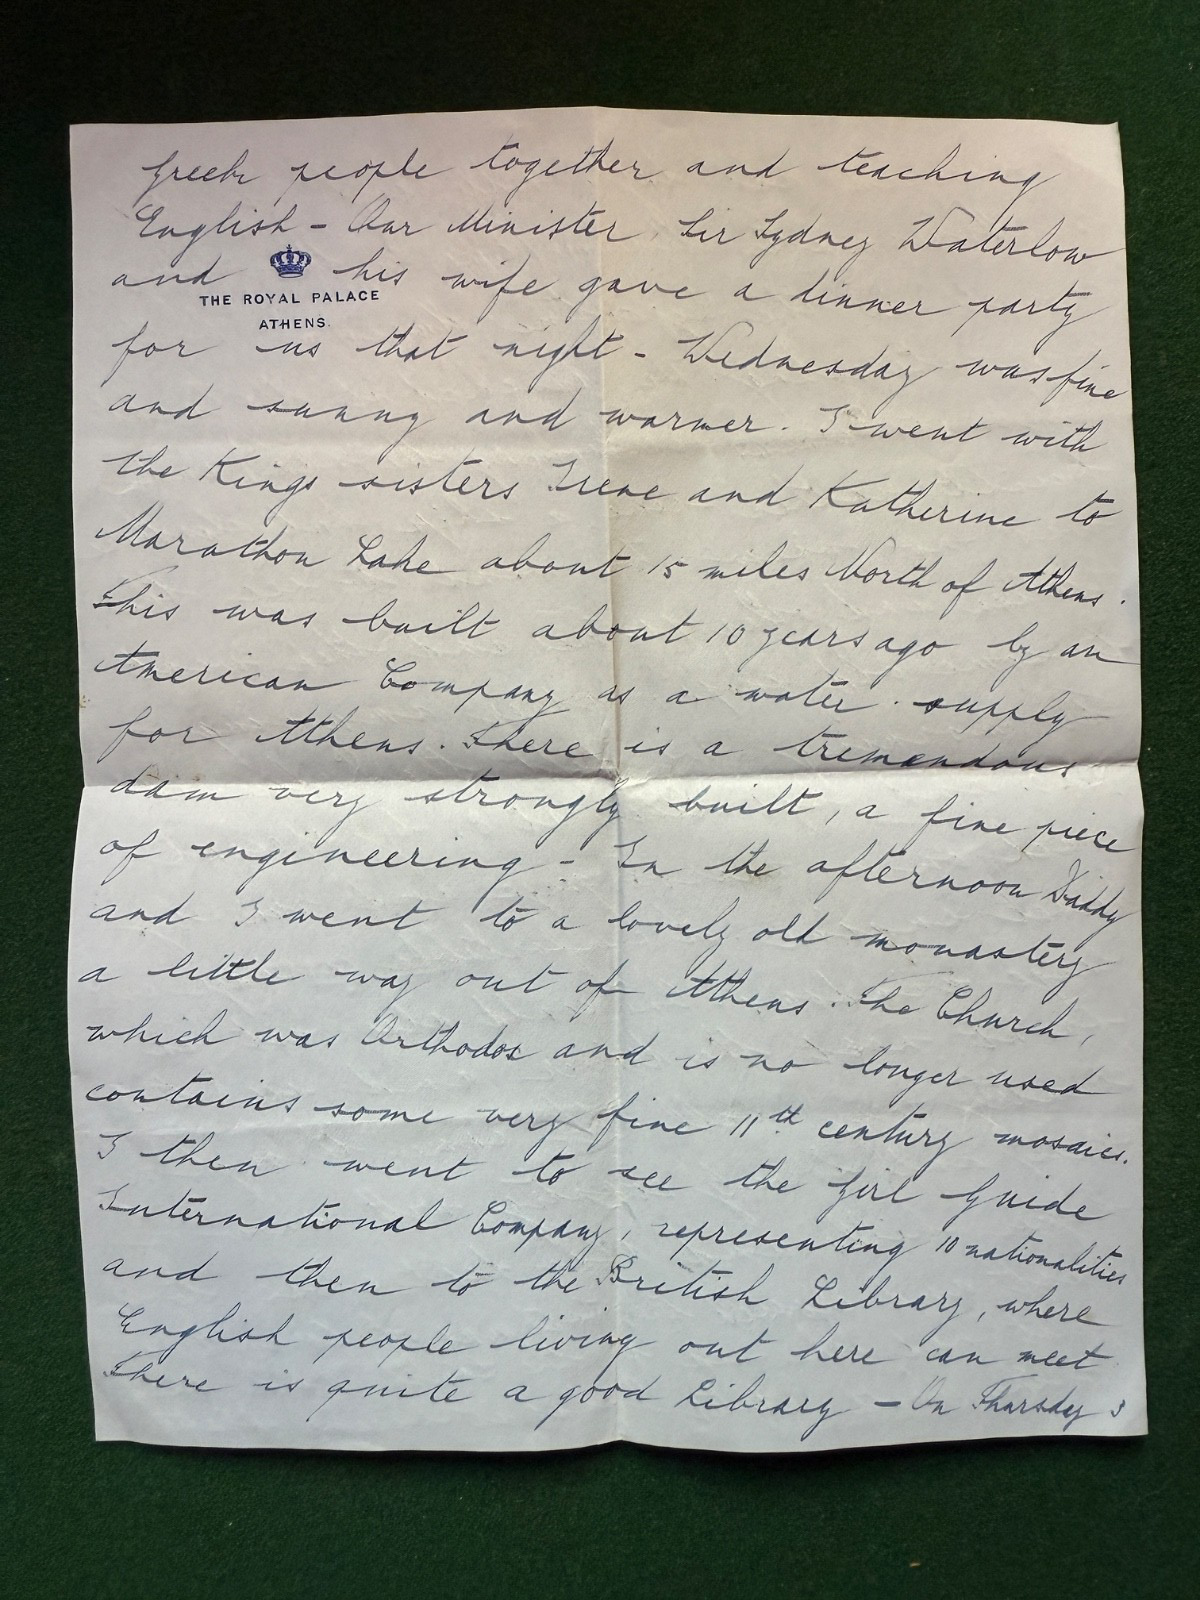 Greek people together and teaching
English - Our Minister, Sir Sydney Waterlow
and his wife gave a dinner party
THE ROYAL PALACE
ATHENS.
for us that night - Wednesday was fine
and sunny and warmer. I went with
the Kings sisters Irene and Katherine to
Marathon Lake about 15 miles North of Athens.
This was built about 10 years ago by an
American Company as a water supply
for Athens. There is a tremendous
dam very strongly built, a fine piece
of engineering - In the afternoon Daddy
and I went to a lovely old monastery
a little way out of Athens. The Church,
which was Orthodox and is no longer used
contains some very fine 11th century mosaics.
I then went to see the Girl Guide
International Company, representing 10 nationalities
and then to the British Library, where
English people living out here can meet
There is quite a good Library - On Thursday I